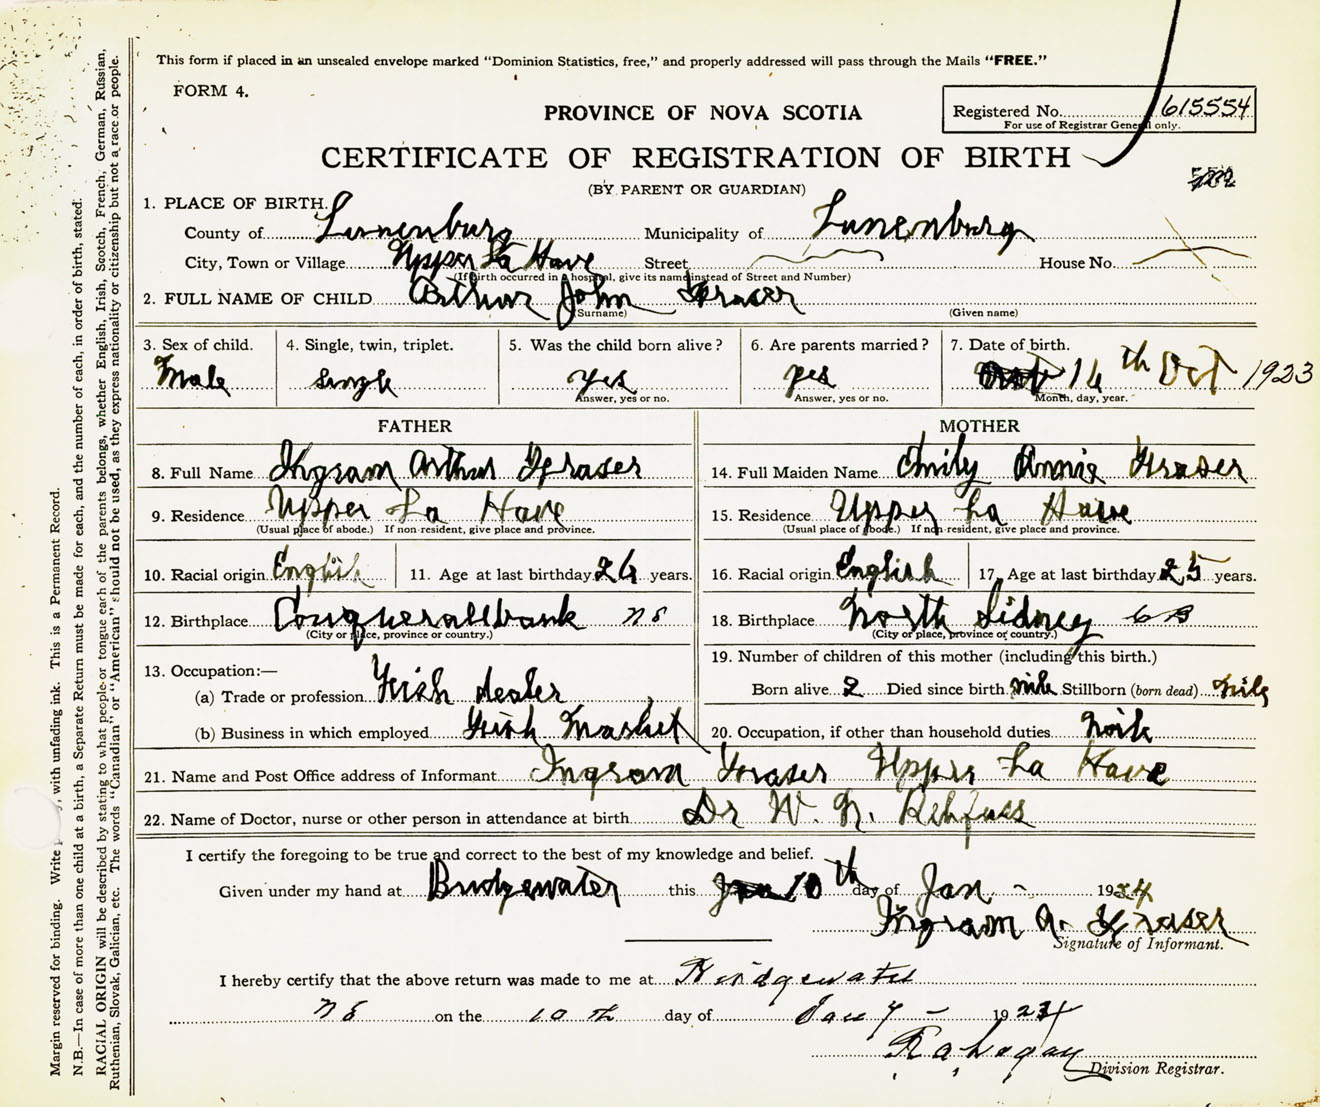 This form if placed in an unsealed envelope marked "Dominion Statistics, free," and properly addressed will pass through the Mails "FREE."
FORM 4.
PROVINCE OF NOVA SCOTIA
Registered No. 615554
For use of Registrar General only.
CERTIFICATE OF REGISTRATION OF BIRTH
(BY PARENT OR GUARDIAN)
1. PLACE OF BIRTH.
County of Lunenburg Municipality of Lunenburg
City, Town or Village Upper La Have Street House No.
(If birth occurred in a hospital, give its name instead of Street and Number)
2. FULL NAME OF CHILD Arthur John Fraser
(Surname) (Given name)
3. Sex of child. 4. Single, twin, triplet. 5. Was the child born alive? 6. Are parents married? 7. Date of birth.
Male single yes yes th Oct 1923
Answer, yes or no. Answer, yes or no. Month, day, year.
FATHER MOTHER
8. Full Name Ingram Arthur Fraser 14. Full Maiden Name Emily Annie Fraser
9. Residence Upper La Have 15. Residence Upper La Have
(Usual place of abode.) If non-resident, give place and province. (Usual place of abode.) If non-resident, give place and province.
10. Racial origin English 11. Age at last birthday 26 years. 16. Racial origin English 17. Age at last birthday 25 years.
12. Birthplace Conquerallbank NS 18. Birthplace North Sidney CB
(City or place, province or country.) (City or place, province or country.)
13. Occupation:— 19. Number of children of this mother (including this birth.)
(a) Trade or profession Fish dealer Born alive 2 Died since birth Stillborn (born dead)
(b) Business in which employed Fish Market 20. Occupation, if other than household duties
21. Name and Post Office address of Informant Ingram Fraser Upper La Have
22. Name of Doctor, nurse or other person in attendance at birth Dr W. N. Rehfuss
I certify the foregoing to be true and correct to the best of my knowledge and belief.
Given under my hand at Bridgewater this 10th day of Jan 1924
Ingram A. Fraser
Signature of Informant.
I hereby certify that the above return was made to me at Bridgewater
NS on the 10th day of Jany 1924
Division Registrar.
Margin reserved for binding. Write with unfading ink. This is a Permanent Record.
N.B.—In case of more than one child at a birth, a Separate Return must be made for each, and the number of each, in order of birth, stated.
RACIAL ORIGIN will be described by stating to what people or tongue each of the parents belongs, whether English, Irish, Scotch, French, German, Russian,
Ruthenian, Slovak, Galician, etc. The words "Canadian" or "American" should not be used, as they express nationality or citizenship but not a race or people.